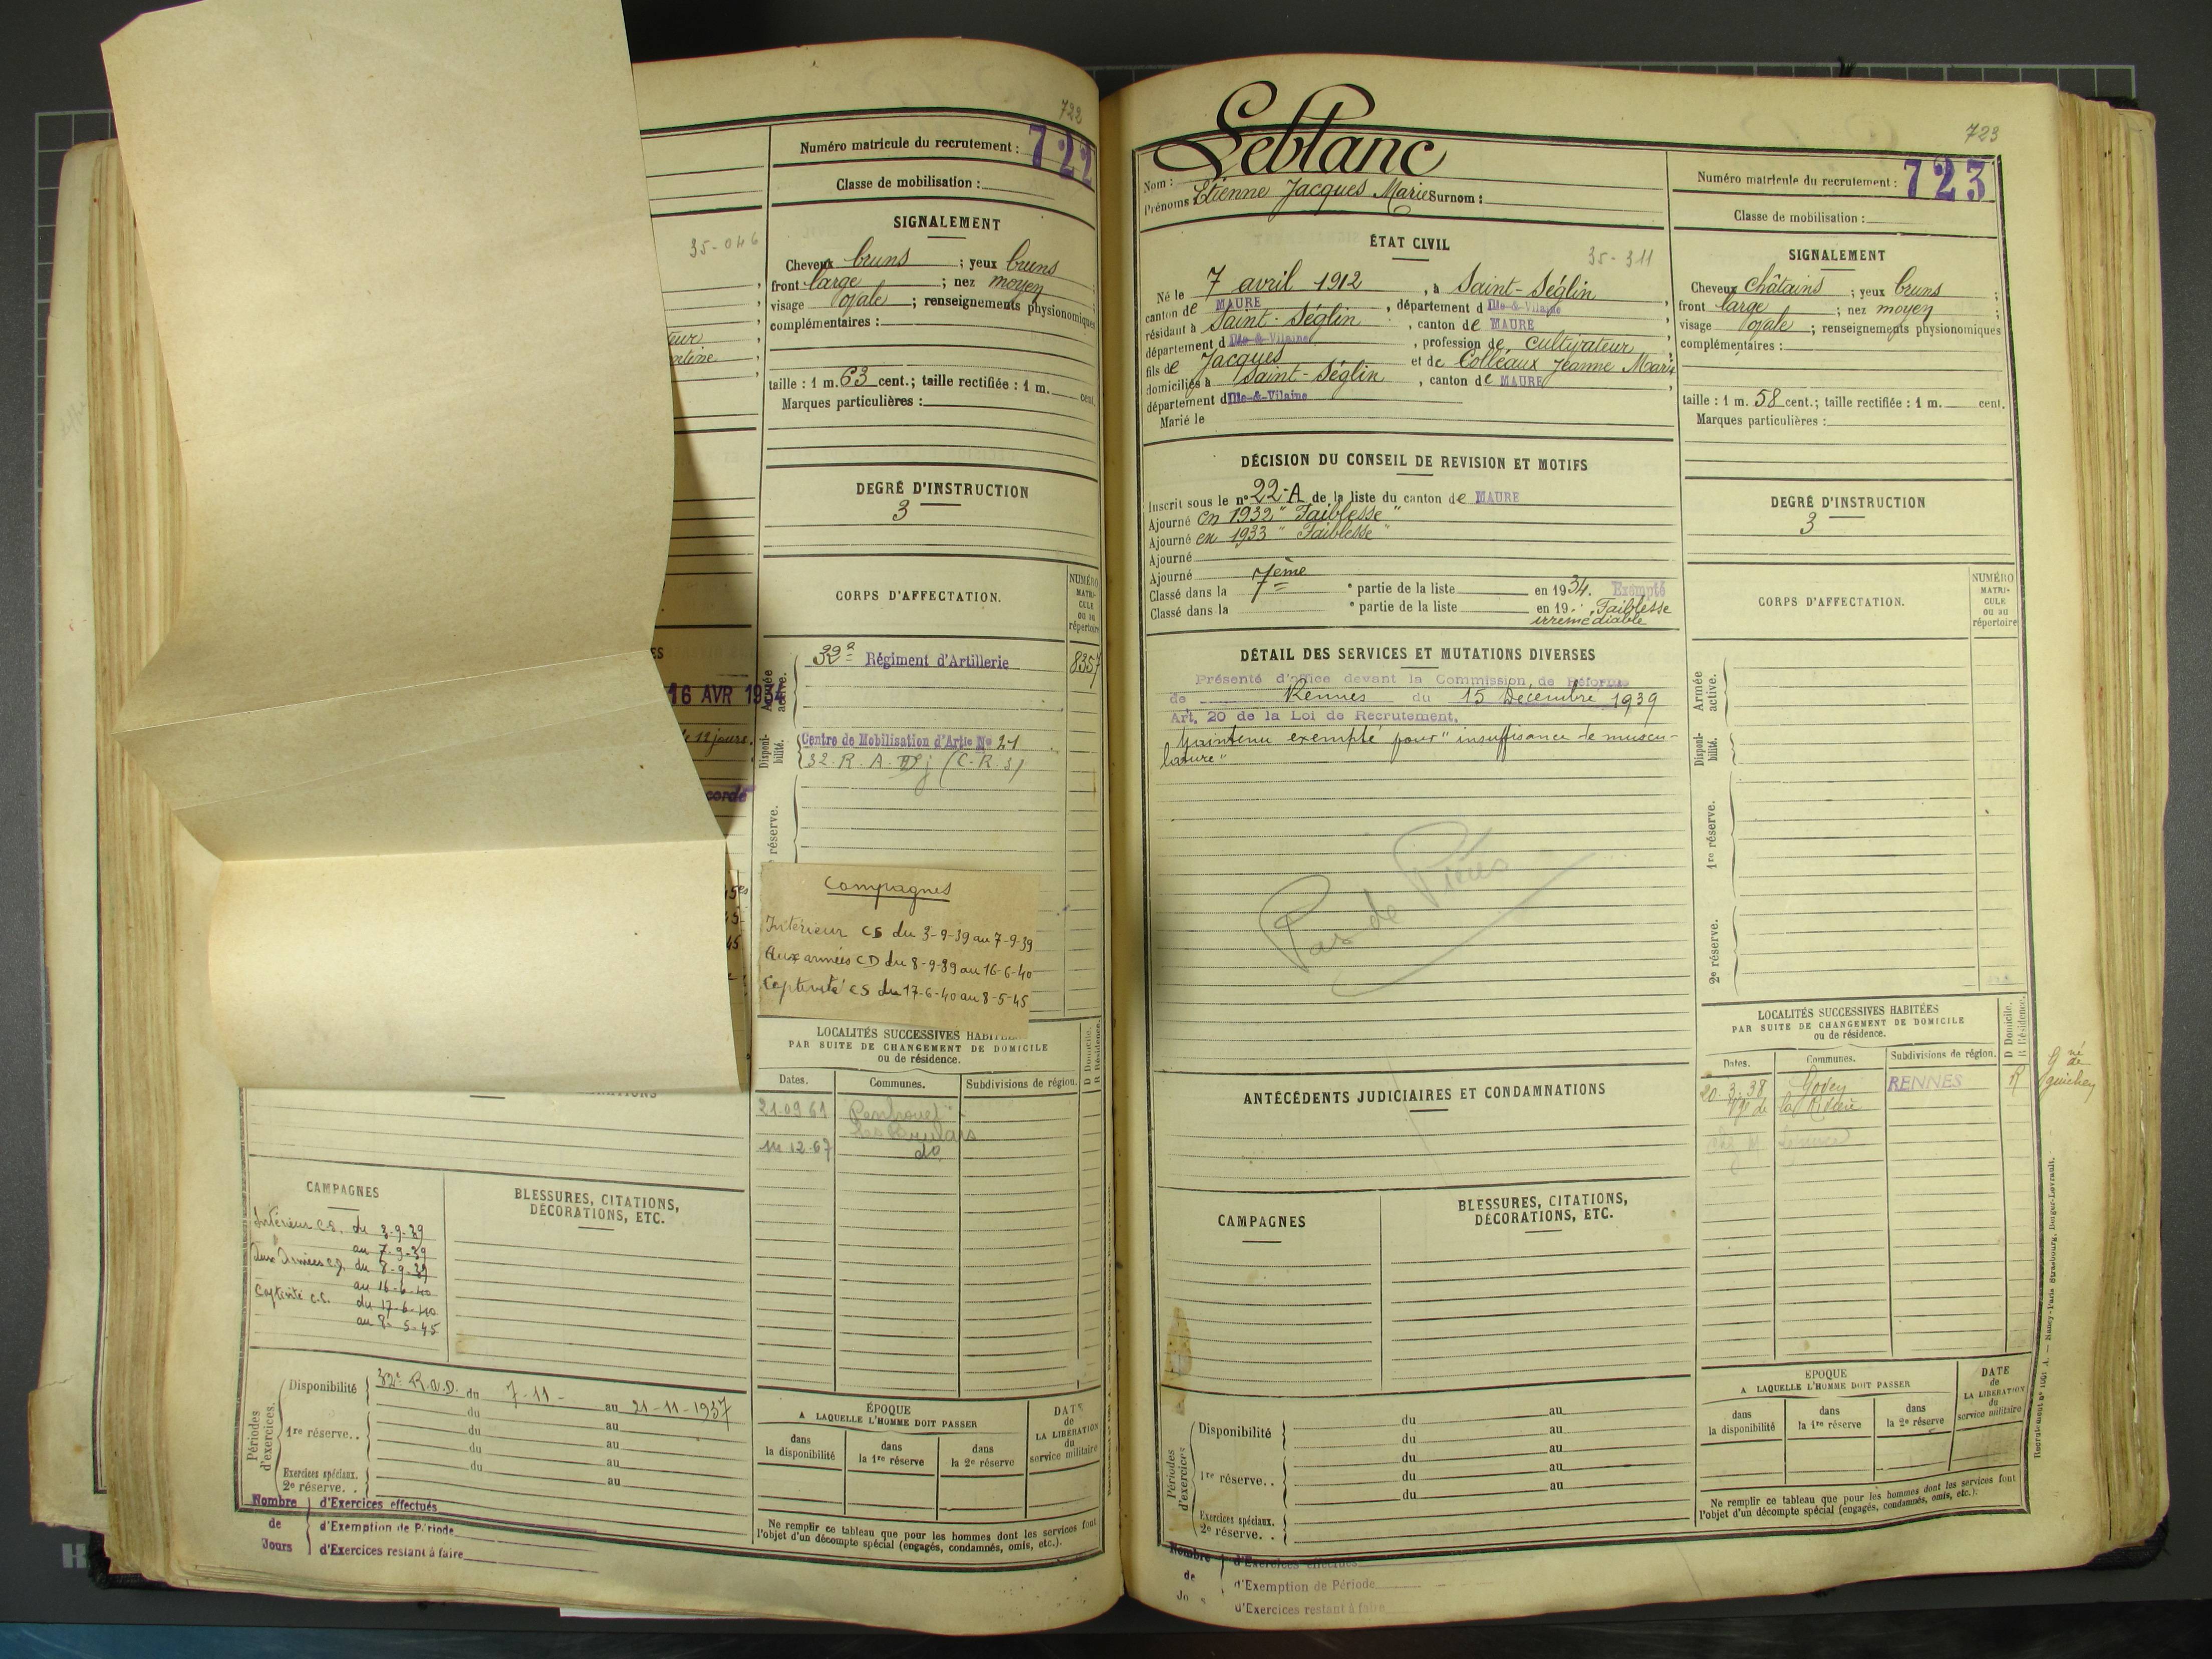 722
Numéro matricule du recrutement : 722
Classe de mobilisation :
35-046
SIGNALEMENT
Cheveux bruns ; yeux bruns
front large ; nez moyen ;
visage ovale ; renseignements physionomiques
complémentaires :
taille : 1 m. 63 cent.; taille rectifiée : 1 m. cent.
Marques particulières :
DEGRÉ D'INSTRUCTION
3
CORPS D'AFFECTATION.
NUMÉRO
MATRI-
CULE
ou au
répertoire
Armée active.
32e Régiment d'Artillerie 8357
16 AVR 1934
12 jours.
Disponi-
bilité.
Centre de Mobilisation d'Artie No 21
32. R. A. (C. R. 3)
réserve.
Campagnes
Intérieur CS du 3-9-39 au 7-9-39
Aux armées CD du 8-9-39 au 16-6-40
Captivité CS du 17-6-40 au 8-5-45
LOCALITÉS SUCCESSIVES
PAR SUITE DE CHANGEMENT DE DOMICILE
ou de résidence.
D Domicile.
R Résidence.
Dates. Communes. Subdivisions de région.
21.09 61
12-67 do
CAMPAGNES
BLESSURES, CITATIONS,
DÉCORATIONS, ETC.
Intérieur C.S. du 3-9-39
au 7-9-39
Aux Armées C.D. du 8-9-39
au 16-6-40
Captivité C.S. du 17-6-40
au 8-5-45
Périodes
d'exercices.
Disponibilité 32e R.A.D. du 7-11- au 21-11-1937
du au
1re réserve. . du au
du au
du au
Exercices spéciaux.
2e réserve. . au
Nombre
de
Jours
d'Exercices effectués
d'Exemption de Période
d'Exercices restant à faire
ÉPOQUE
A LAQUELLE L'HOMME DOIT PASSER
dans
la disponibilité
dans
la 1re réserve
dans
la 2e réserve
DATE
de
LA LIBÉRATION
du
service militaire
Ne remplir ce tableau que pour les hommes dont les services font
l'objet d'un décompte spécial (engagés, condamnés, omis, etc.).
723
Nom : Leblanc
Prénoms : Etienne Jacques Marie Surnom :
Numéro matricule du recrutement : 723
Classe de mobilisation :
ÉTAT CIVIL
35-311
Né le 7 avril 1912, à Saint-Séglin,
canton de MAURE, département d Ille-&-Vilaine,
résidant à Saint-Séglin, canton de MAURE,
département d Ille-&-Vilaine, profession de cultivateur,
fils de Jacques et de Colléaux Jeanne Marie
domiciliés à Saint-Séglin, canton de MAURE,
département d Ille-&-Vilaine
Marié le
SIGNALEMENT
Cheveux châtains ; yeux bruns ;
front large ; nez moyen ;
visage ovale ; renseignements physionomiques
complémentaires :
taille : 1 m. 58 cent.; taille rectifiée : 1 m. cent.
Marques particulières :
DÉCISION DU CONSEIL DE REVISION ET MOTIFS
Inscrit sous le no 22-A de la liste du canton de MAURE
Ajourné en 1932 "Faiblesse"
Ajourné en 1933 "Faiblesse"
Ajourné
Ajourné
Classé dans la 7ème e partie de la liste en 1934. Exempté
Classé dans la e partie de la liste en 19 . Faiblesse
irrémédiable
DEGRÉ D'INSTRUCTION
3
DÉTAIL DES SERVICES ET MUTATIONS DIVERSES
Présenté d'office devant la Commission de Réforme
de Rennes du 15 Décembre 1939
Art. 20 de la Loi de Recrutement.
Maintenu exempté pour "insuffisance de muscu-
lature"
Pas de Pièces
CORPS D'AFFECTATION.
NUMÉRO
MATRI-
CULE
ou au
répertoire
Armée
active.
Disponi-
bilité.
1re réserve.
2e réserve.
LOCALITÉS SUCCESSIVES HABITÉES
PAR SUITE DE CHANGEMENT DE DOMICILE
ou de résidence.
D Domicile.
R Résidence.
Dates. Communes. Subdivisions de région.
20-3-38 Goven RENNES R
Gné
de
Guichen
ANTÉCÉDENTS JUDICIAIRES ET CONDAMNATIONS
CAMPAGNES
BLESSURES, CITATIONS,
DÉCORATIONS, ETC.
Périodes
d'exercices
Disponibilité du au
du au
1re réserve. . du au
du au
du au
Exercices spéciaux.
2e réserve. .
Nombre
de
d'Exercices effectués
d'Exemption de Période
d'Exercices restant à faire
ÉPOQUE
A LAQUELLE L'HOMME DOIT PASSER
dans
la disponibilité
dans
la 1re réserve
dans
la 2e réserve
DATE
de
LA LIBÉRATION
du
service militaire
Ne remplir ce tableau que pour les hommes dont les services font
l'objet d'un décompte spécial (engagés, condamnés, omis, etc.).